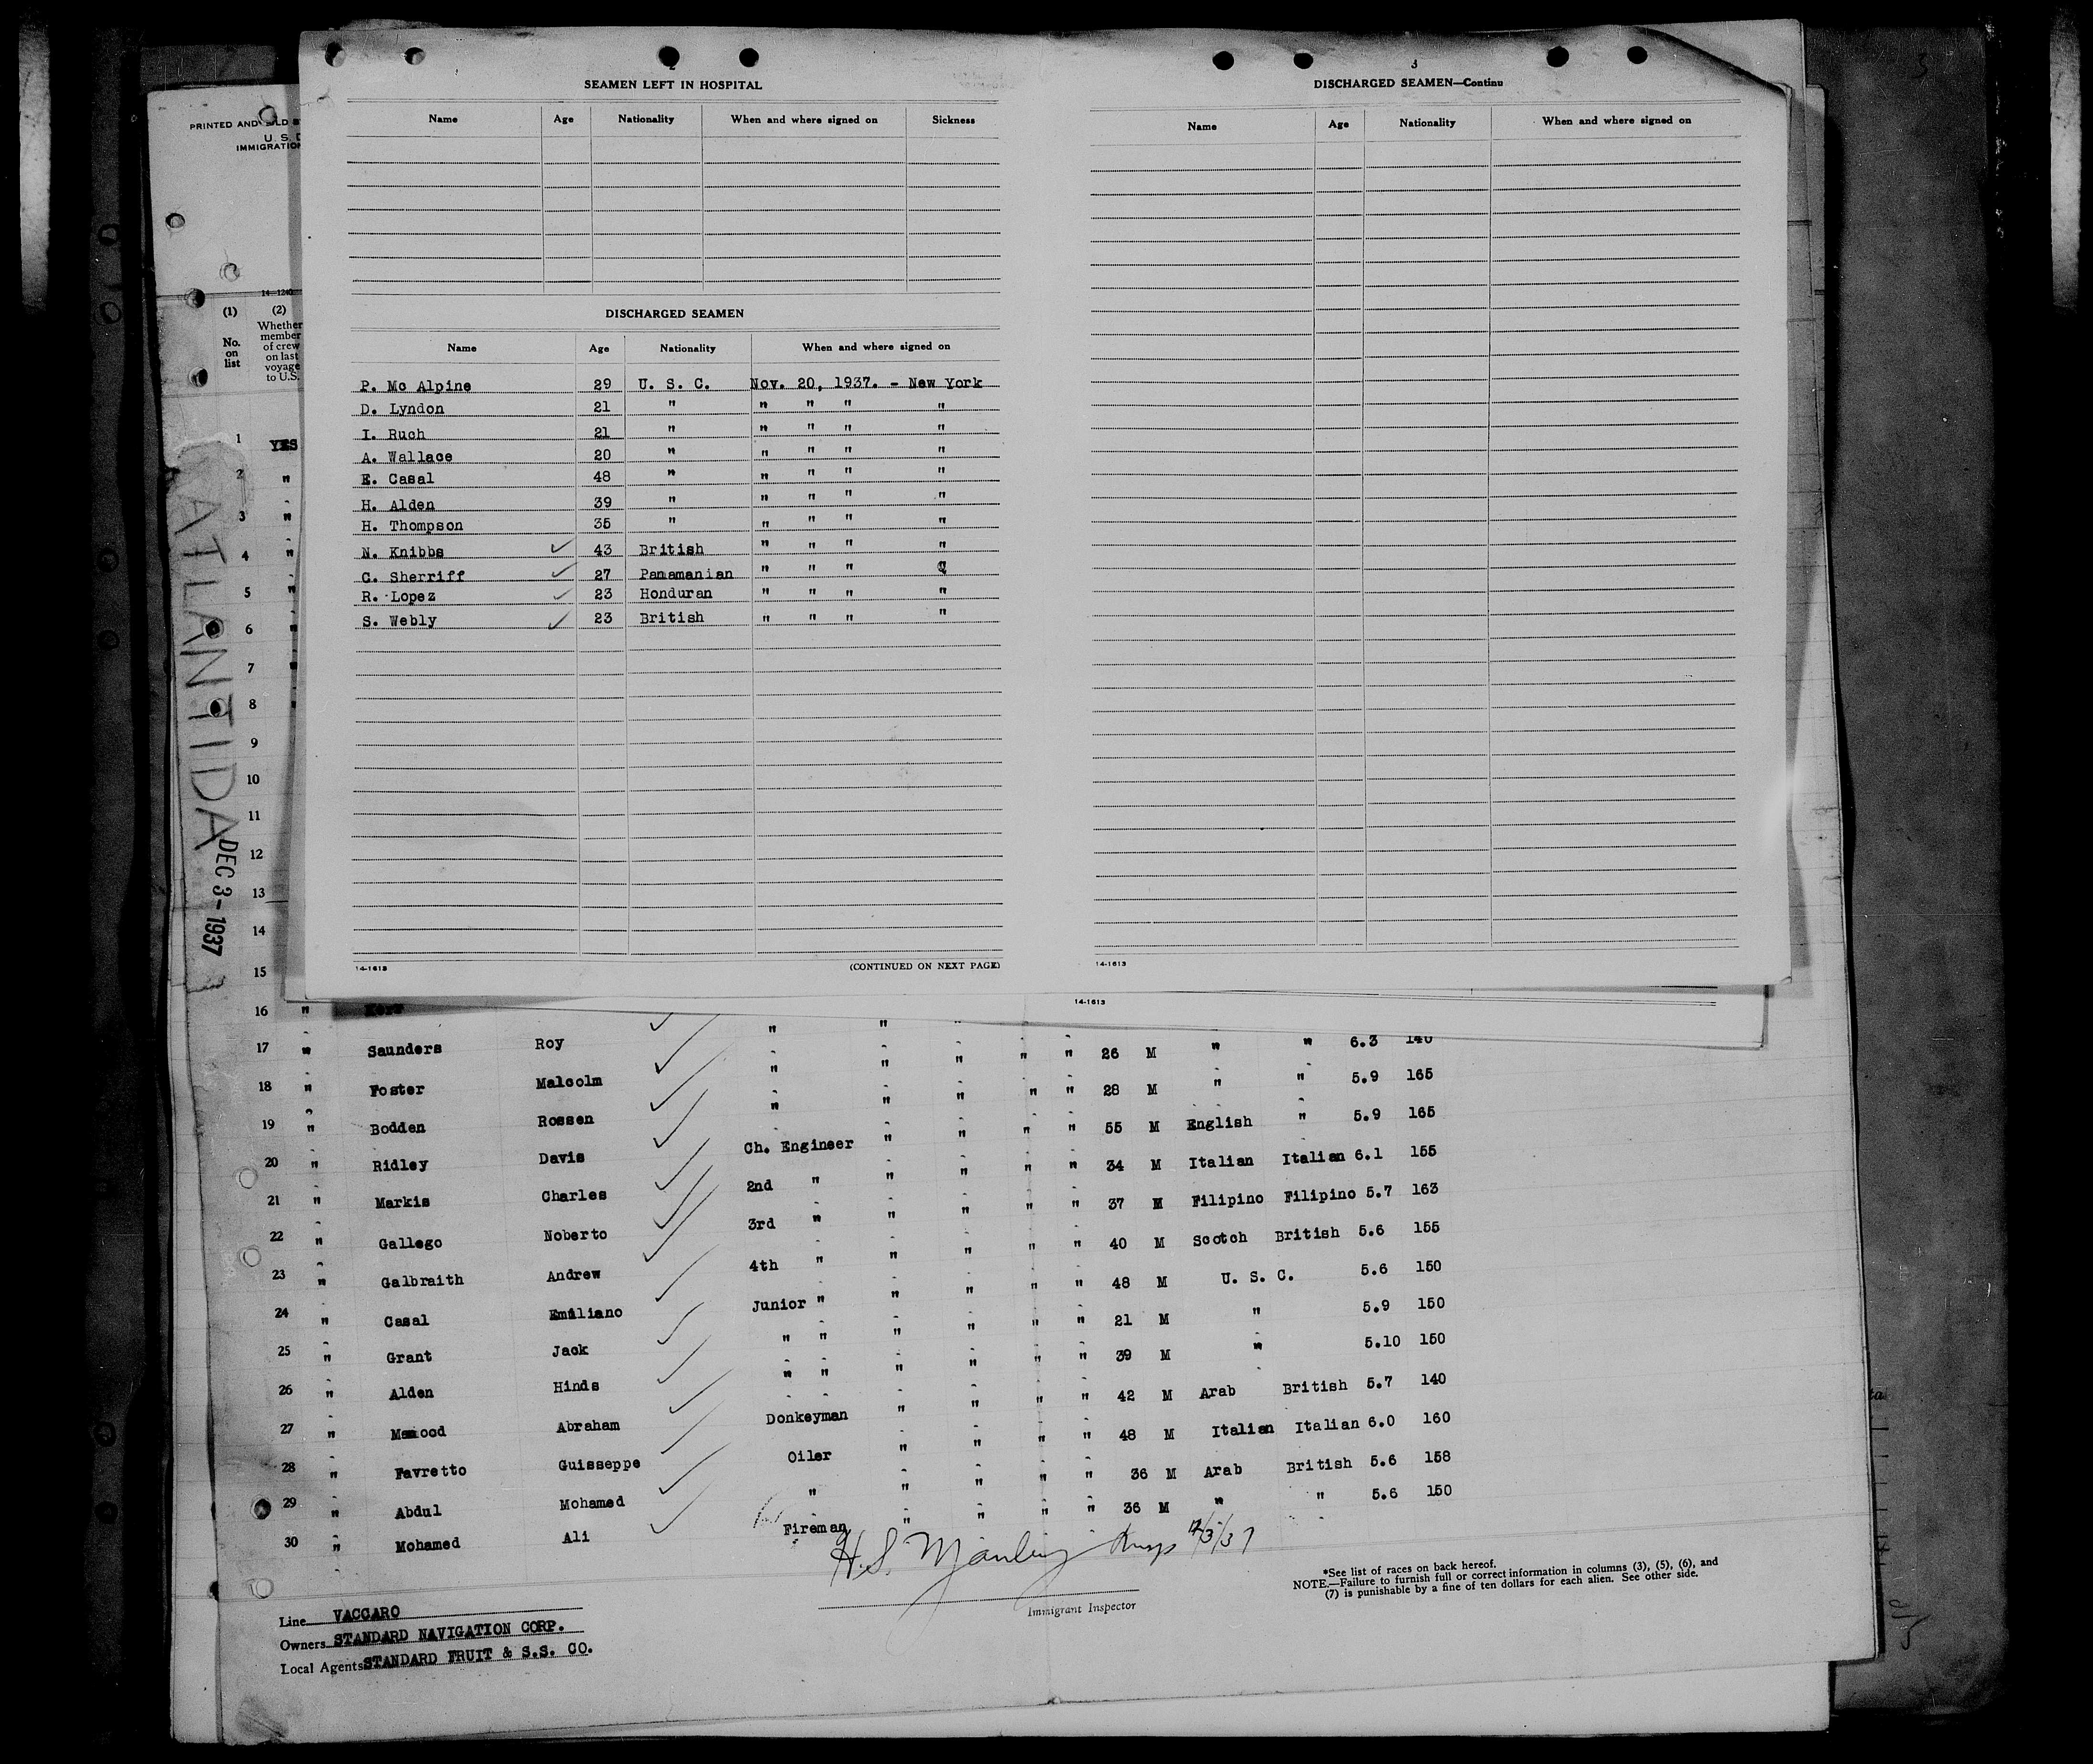 2
SEAMEN LEFT IN HOSPITAL
Name Age Nationality When and where signed on Sickness
DISCHARGED SEAMEN
Name Age Nationality When and where signed on
P. Mc Alpine 29 U. S. C. Nov. 20, 1937. - New York
D. Lyndon 21 " " " " "
I. Ruch 21 " " " " "
A. Wallace 20 " " " " "
E. Casal 48 " " " " "
H. Alden 39 " " " " "
H. Thompson 35 " " " " "
N. Knibbs 43 British " " " "
C. Sherriff 27 Panamanian " " " "
R. Lopez 23 Honduran " " " "
S. Webly 23 British " " " "
14-1613 (CONTINUED ON NEXT PAGE)
3
DISCHARGED SEAMEN—Continu
Name Age Nationality When and where signed on
14-1613
14-1613
PRINTED AND
U. S.
IMMIGRATION
14-1240
(1) (2)
No. on list
Whether member of crew on last voyage to U.S.
1 YES
2 "
3 "
4 "
5 "
6 "
7 "
8 "
9
10
11
12
13
14
15
ATLANTIDA
DEC 3-1937
16 " Kerr " " "
17 " Saunders Roy " " " " " 26 M " " 6.3 140
18 " Foster Malcolm " " " " " 28 M " " 5.9 165
19 " Bodden Rossen Ch. Engineer " " " " 55 M English " 5.9 165
20 " Ridley Davis 2nd " " " " " 34 M Italian Italian 6.1 155
21 " Markis Charles 3rd " " " " " 37 M Filipino Filipino 5.7 163
22 " Gallego Noberto 4th " " " " " 40 M Scotch British 5.6 155
23 " Galbraith Andrew Junior " " " " " 48 M U. S. C. 5.6 150
24 " Casal Emiliano " " " " " " 21 M " 5.9 150
25 " Grant Jack " " " " " " 39 M " 5.10 150
26 " Alden Hinds Donkeyman " " " " 42 M Arab British 5.7 140
27 " Abraham Oiler " " " " 48 M Italian Italian 6.0 160
28 " Favretto Guisseppe " " " " " 36 M Arab British 5.6 158
29 " Abdul Mohamed Fireman " " " " 36 M " " 5.6 150
30 " Mohamed Ali
H. S. 12/3/37
Immigrant Inspector
Line VACCARO
Owners STANDARD NAVIGATION CORP.
Local Agents STANDARD FRUIT & S.S. CO.
*See list of races on back hereof.
NOTE.—Failure to furnish full or correct information in columns (3), (5), (6), and
(7) is punishable by a fine of ten dollars for each alien. See other side.